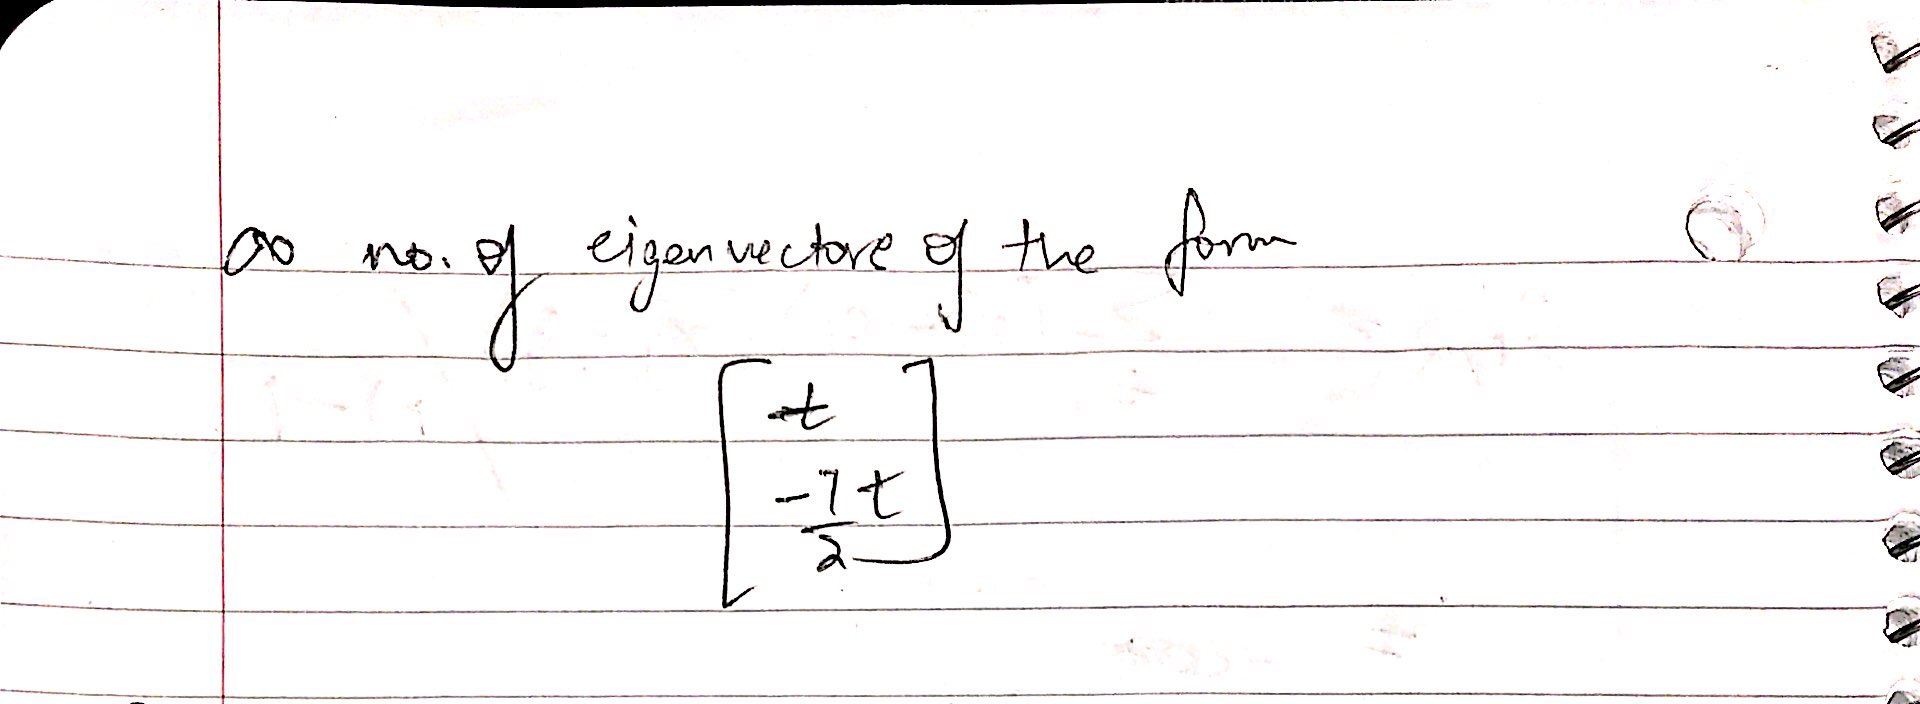 ∞ no. of eigenvectors of the form
t
-7/2 t